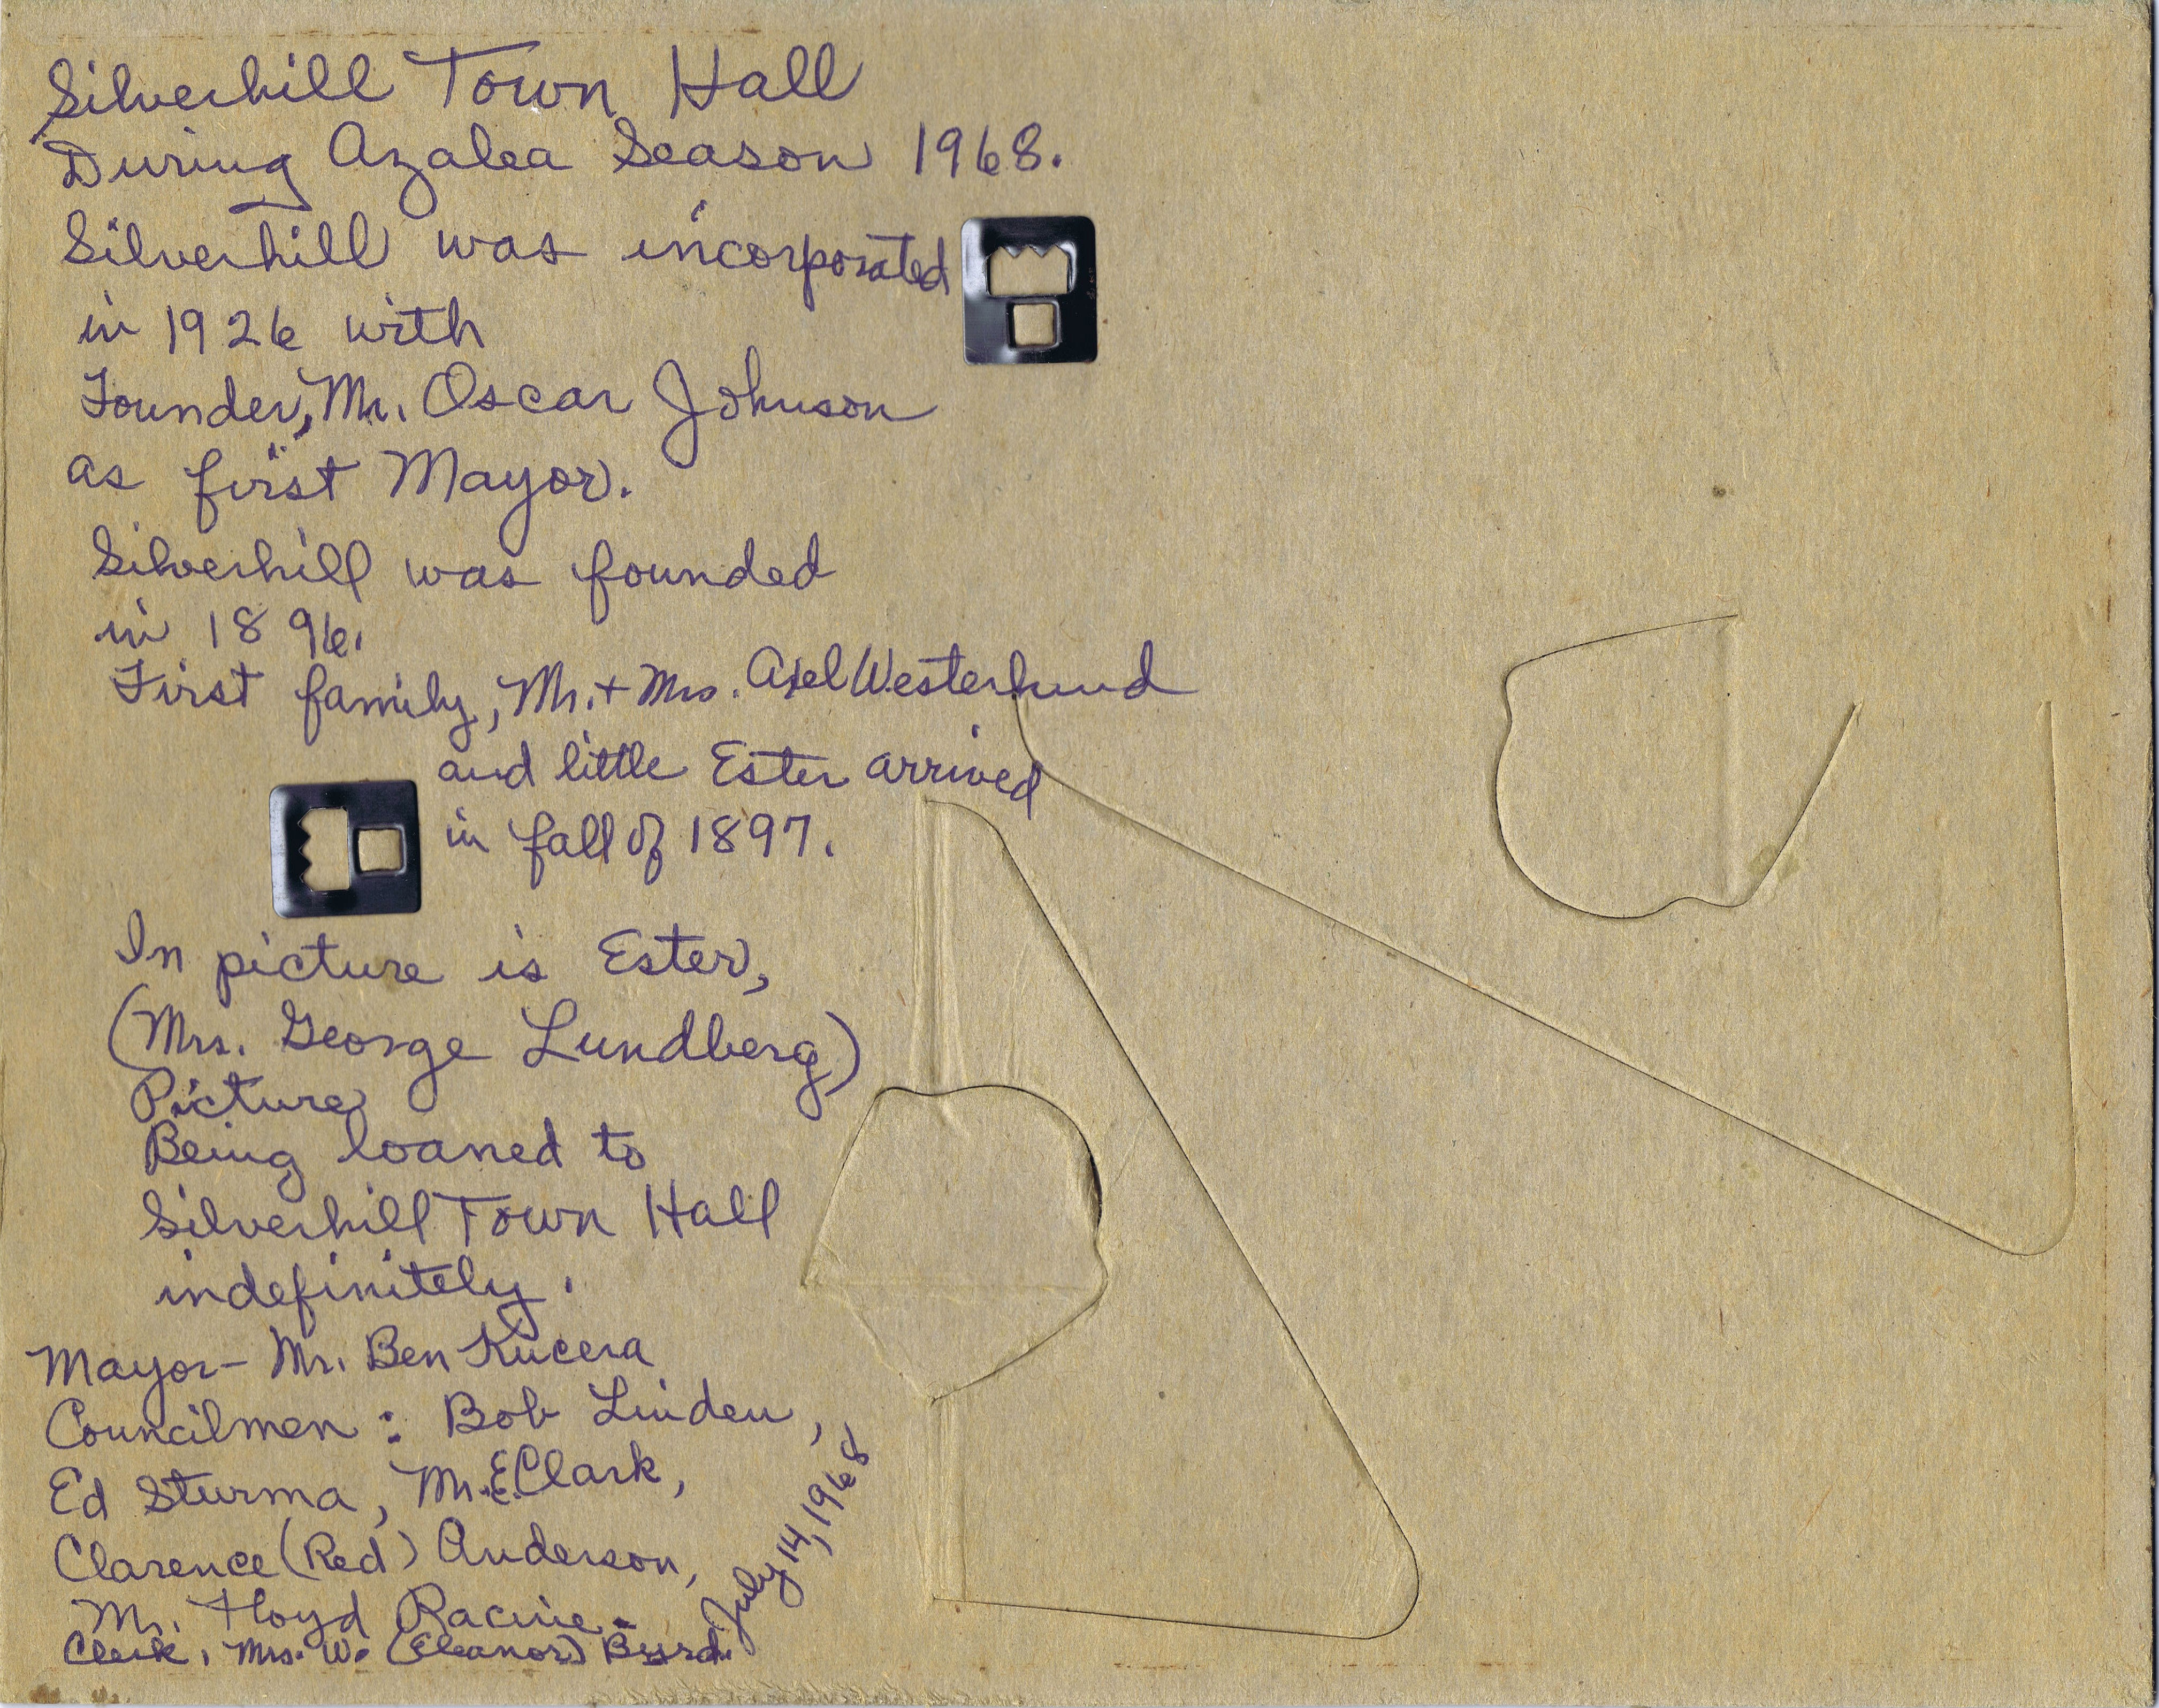 Silverhill Town Hall
During Azalea Season 1968.
Silverhill was incorporated
in 1926 with
Founder, Mr. Oscar Johnson
as first Mayor.
Silverhill was founded
in 1896.
First family, Mr. + Mrs. Axel Westerlund
and little Ester arrived
in fall of 1897.
In picture is Ester,
(Mrs. George Lundberg)
Picture
Being loaned to
Silverhill Town Hall
indefinitely.
Mayor - Mr. Ben Kucera
Councilmen : Bob Linden,
Ed Sturma, Mr. E. Clark,
Clarence (Red) Anderson,
Mr. Floyd Racine -
Clerk, Mrs. W. (Eleanor)
July 14, 1968